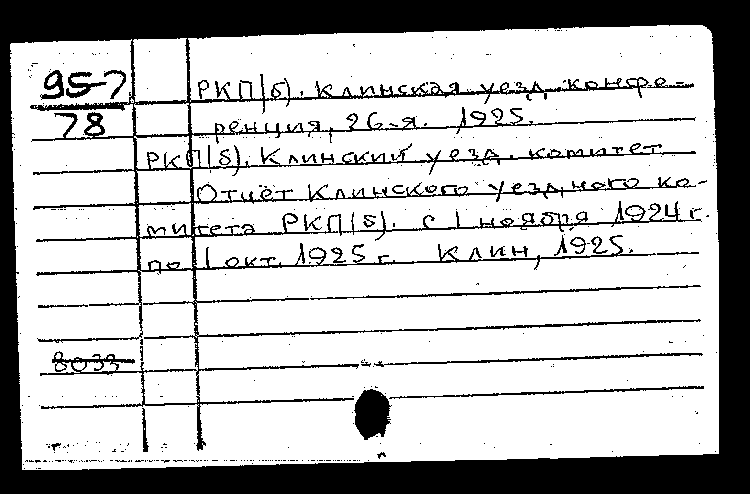 95-7
78
РКП(б). Клинская уезд. конфе-
ренция, 26-я. 1925.
РКП(б). Клинский уезд. комитет
Отчёт Клинского уездного ко-
митета РКП(б). с 1 ноября 1924 г.
по 1 окт. 1925 г. Клин, 1925.
8033